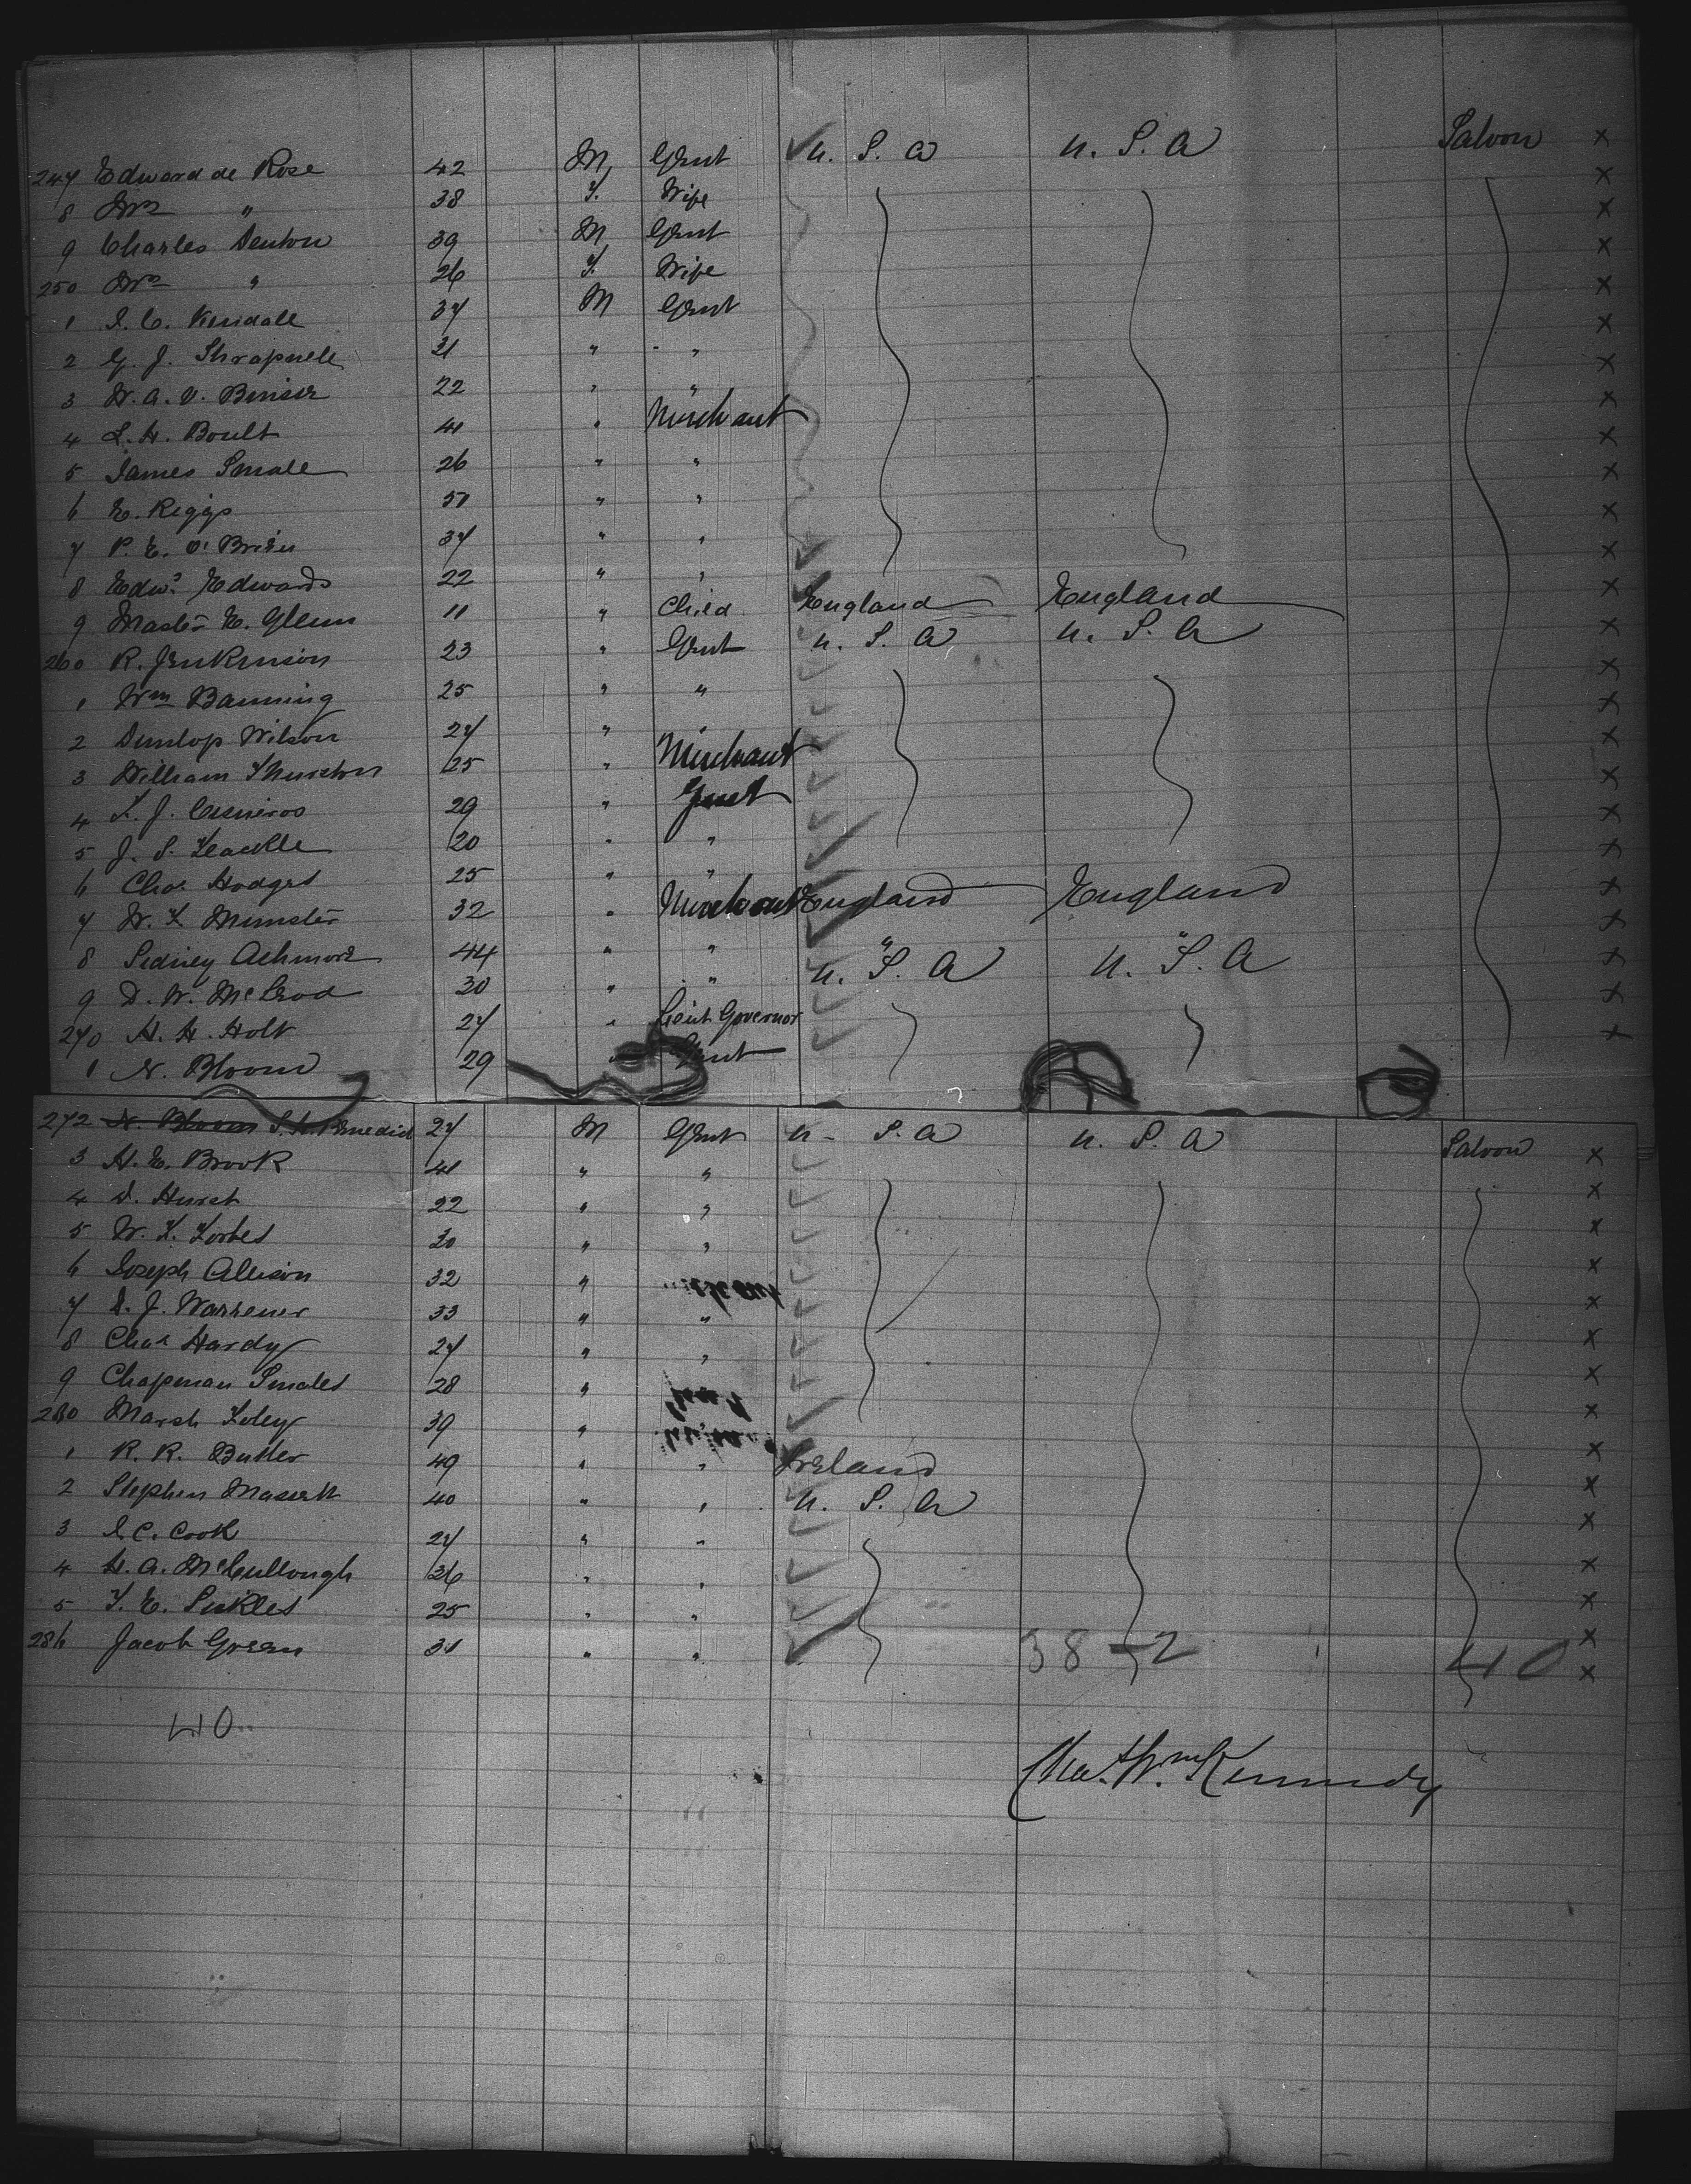 247 Edward de Rose 42 M Gent U. S. A U. S. A Saloon ×
8 Mrs " 38 F. Wife ×
9 Charles Denton 39 M Gent ×
250 Mrs " 26 F. Wife ×
1 J. C. Kendall 37 M Gent ×
2 G. J. Shrapnell 31 " " ×
3 W. A. V. 22 " " ×
4 L. H. Boult 41 " Merchant ×
5 James Smale 26 " " ×
6 E. Riggs 51 " " ×
7 P. E. O'Brien 37 " " ×
8 Edwd Edwards 22 " " ×
9 Master E. Glenn 11 " Child England England ×
260 R. Jenkinson 23 " Gent U. S. A U. S. A ×
1 Wm Banning 25 " " ×
2 Dunlop Wilson 27 " " ×
3 William Thurston 25 " Merchant ×
4 F. J. Cisneros 29 " Gent ×
5 J. S. 20 " " ×
6 Chas Hodges 25 " " ×
7 W. F. Munster 32 " Merchant England England ×
8 Sidney Ashmore 44 " " " " ×
9 D. W. McLeod 30 " " U. S. A U. S. A ×
270 H. H. Holt 27 " Lieut Governor ×
1 N. Bloom 29 " Gent ×
272 N. Bloom Benedict 27 M Gent U. S. A U. S. A Saloon ×
3 H. E. Brook 41 " " ×
4 D. Hurst 22 " " ×
5 W. F. Forbes 30 " " ×
6 Joseph Allison 32 " ×
7 S. J. Warrener 33 " " ×
8 Chas Hardy 27 " " ×
9 Chapman Smales 28 " ×
280 Marsh Foley 39 " ×
1 R. R. Butler 49 " " Ireland ×
2 Stephen 40 " " U. S. A ×
3 J. C. Cook 27 " " ×
4 H. A. McCullough 36 " " ×
5 T. E. Sickles 25 " " ×
286 Jacob Green 31 " " 38 - 2 40 ×
40
Chas. Wm Kennedy